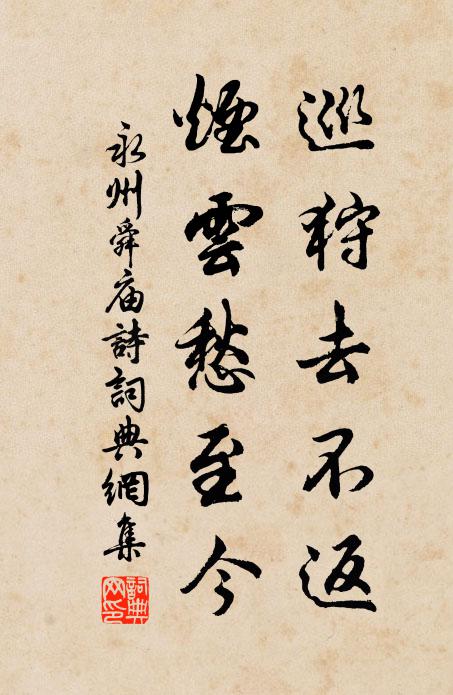 巡狩去不返
煙雲愁至今
永州舜庙詩詞典網集
詞典網印